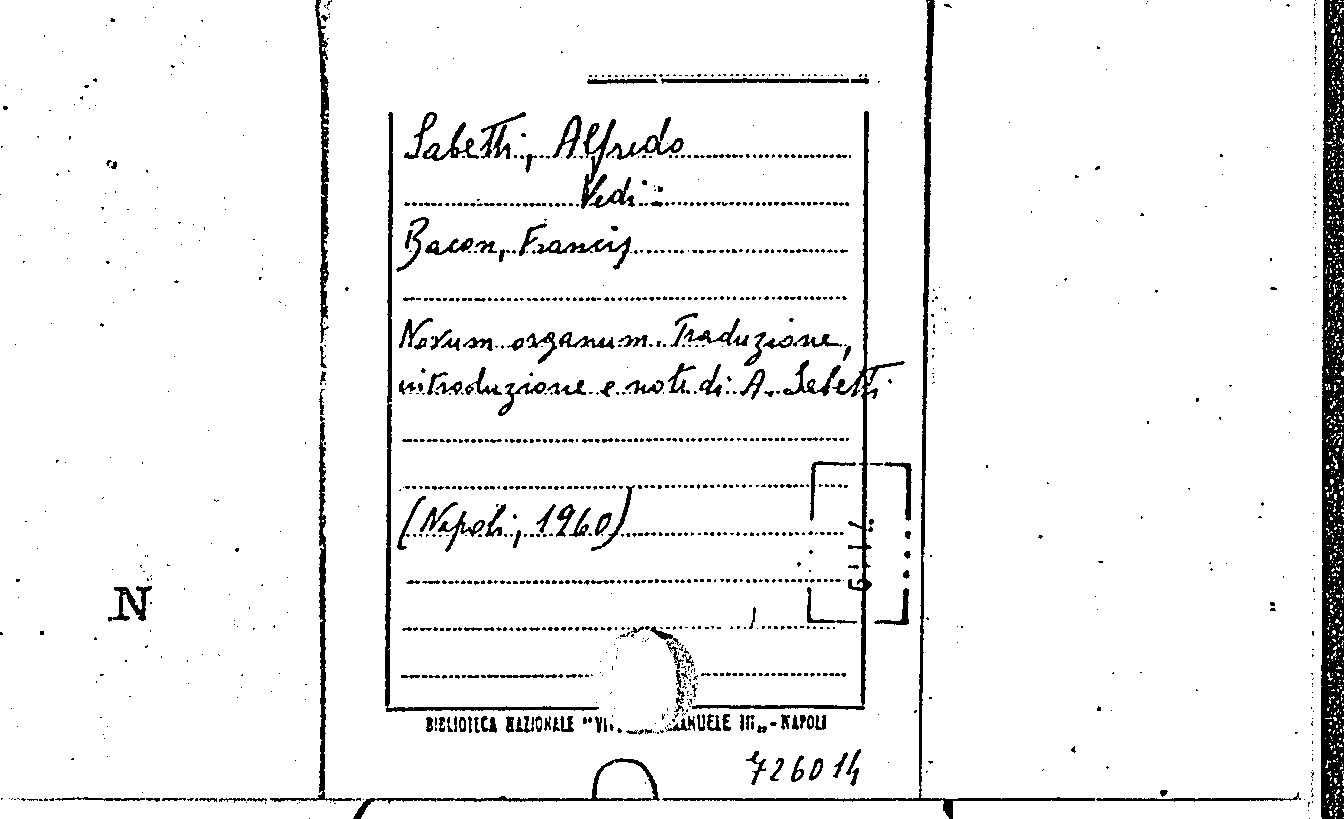 Sabetti, Alfredo
Vedi:
Bacon, Francis
Novum organum. Traduzione,
introduzione e note di A. Sabetti
(Napoli, 1960)
N
BIBLIOTECA NAZIONALE "VI ANUELE III„ - NAPOLI
726014